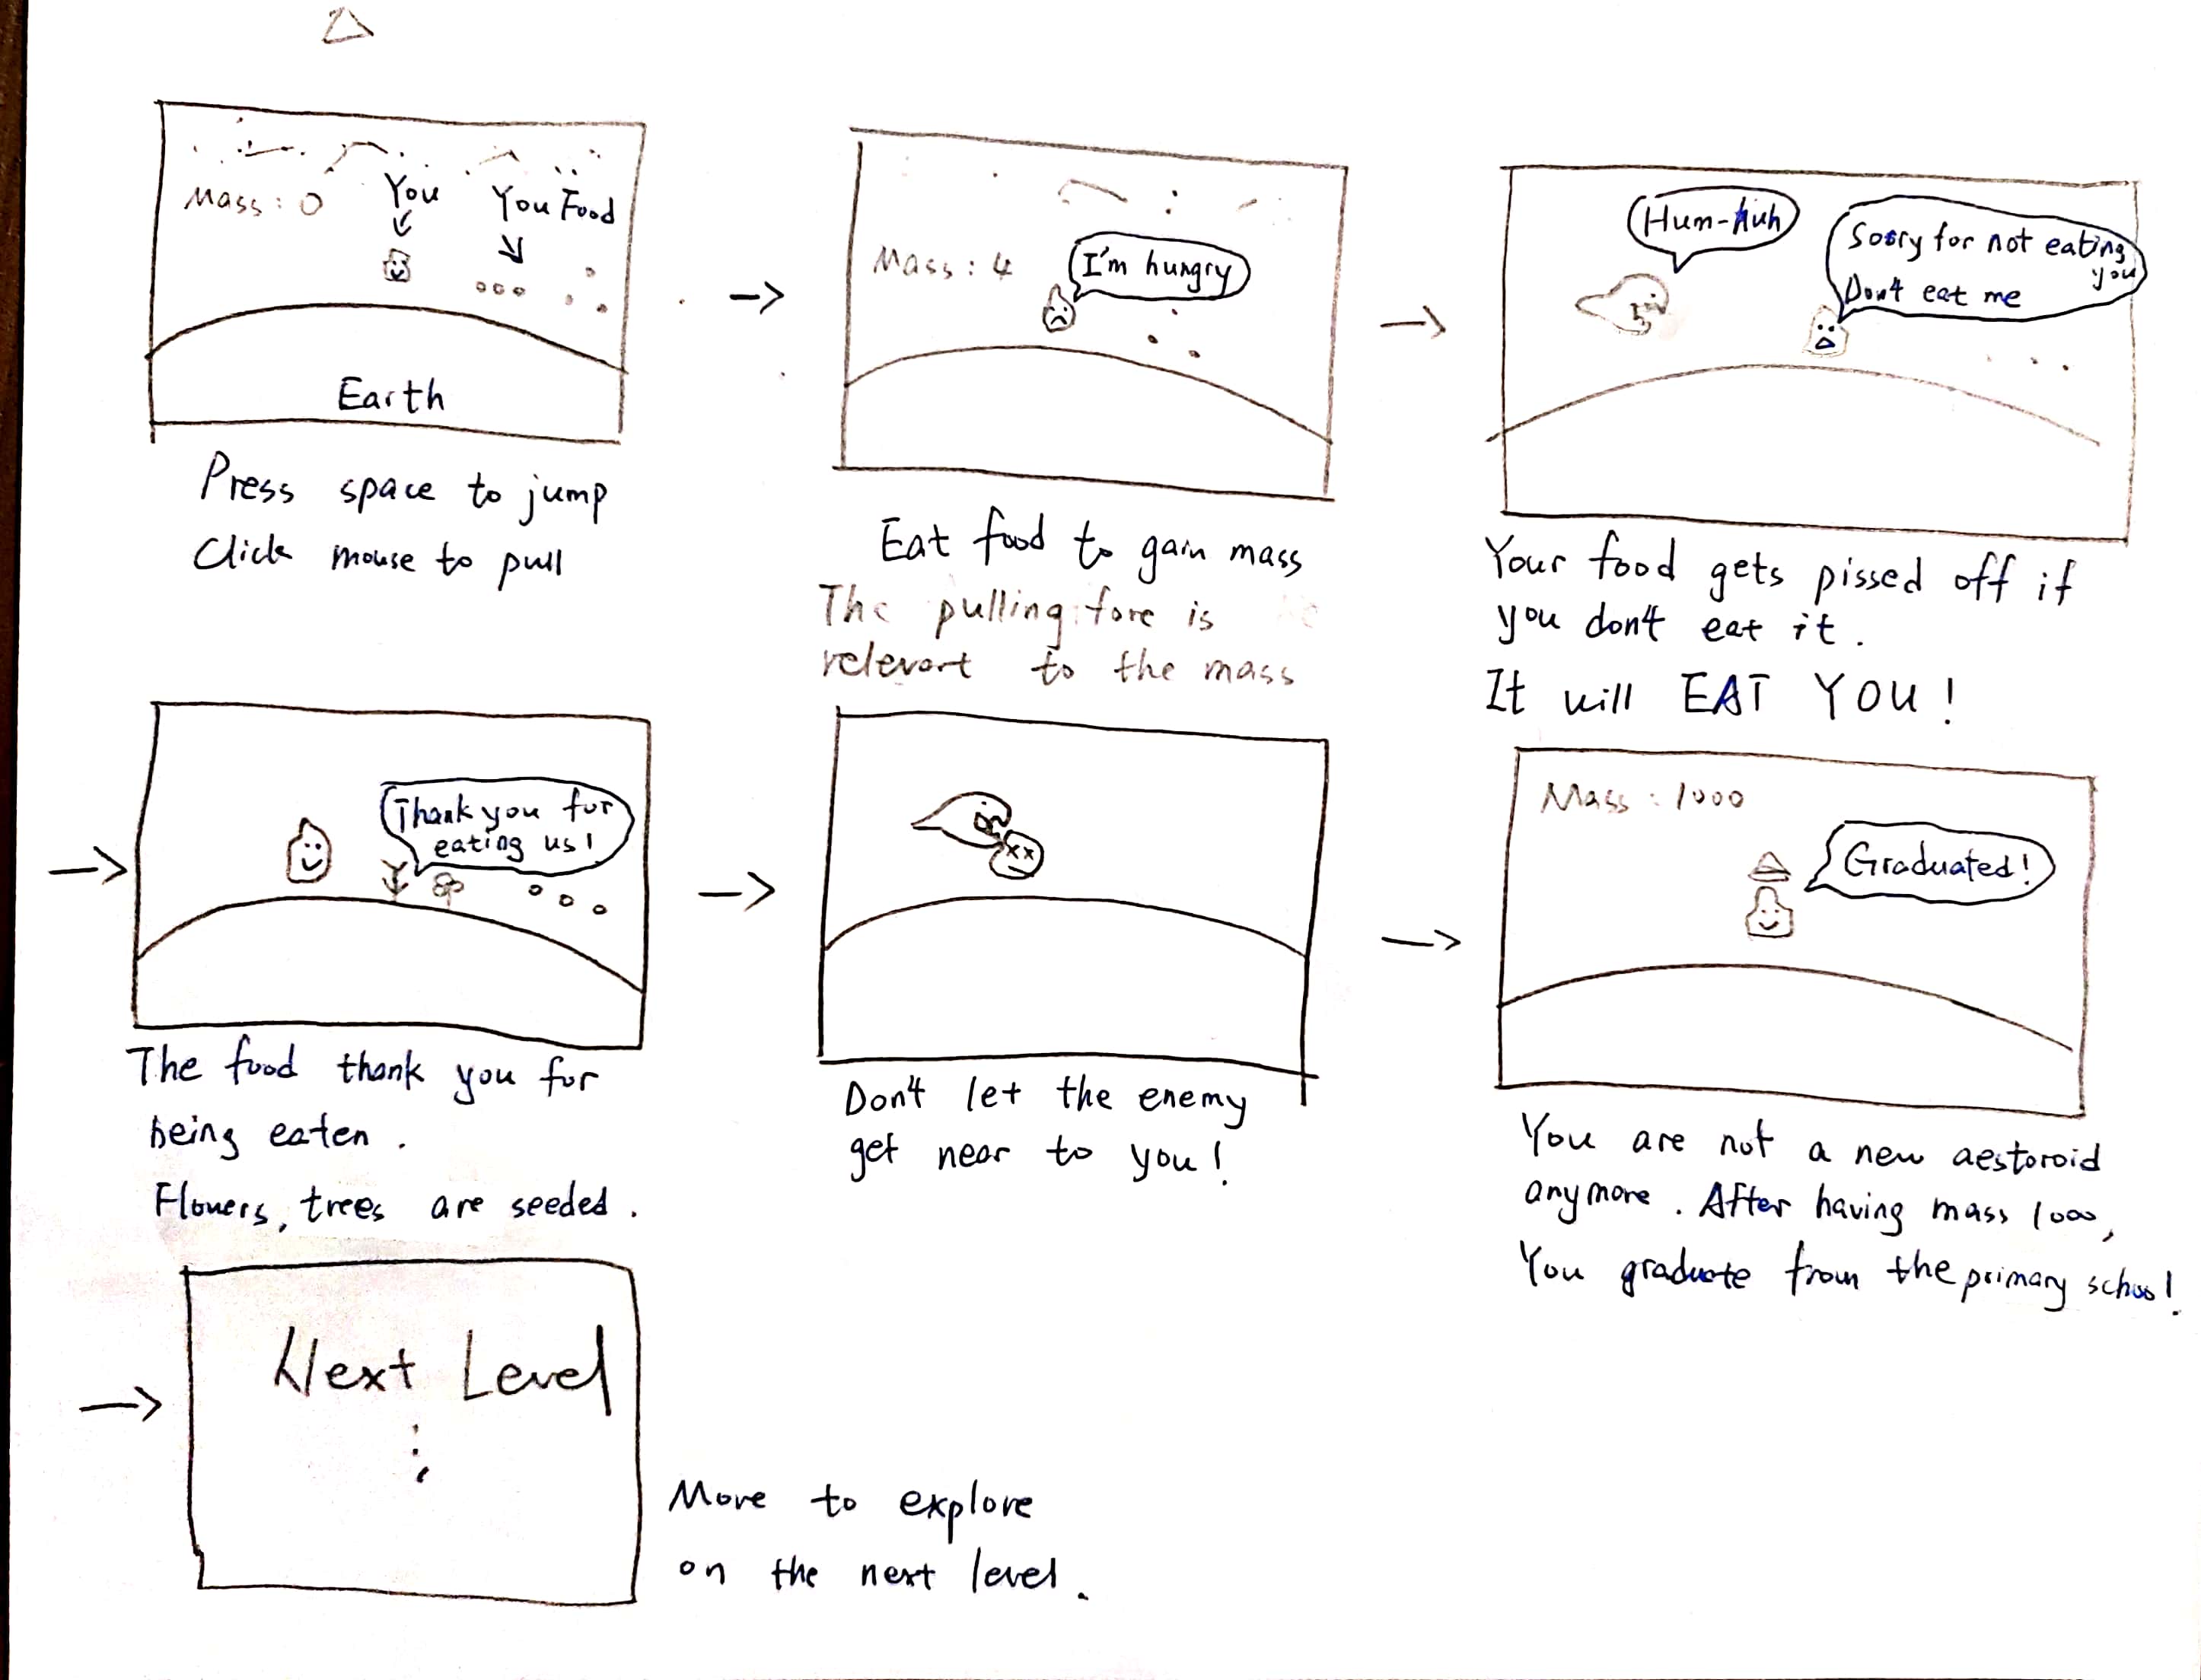 Mass : 0
You
You Food
Earth
Press space to jump
Click mouse to pull
Mass : 4
I'm hungry
Eat food to gain mass
The pulling fore is
relevant to the mass
Hum-huh
Sorry for not eating
you
Don't eat me
Your food gets pissed off if
you don't eat it.
It will EAT YOU!
Thank you for
eating us!
The food thank you for
being eaten.
Flowers, trees are seeded.
Don't let the enemy
get near to you!
Mass : 1000
Graduated!
You are not a new aestoroid
anymore. After having mass 1000,
You graduate from the primary school!
Next Level
Move to explore
on the next level.